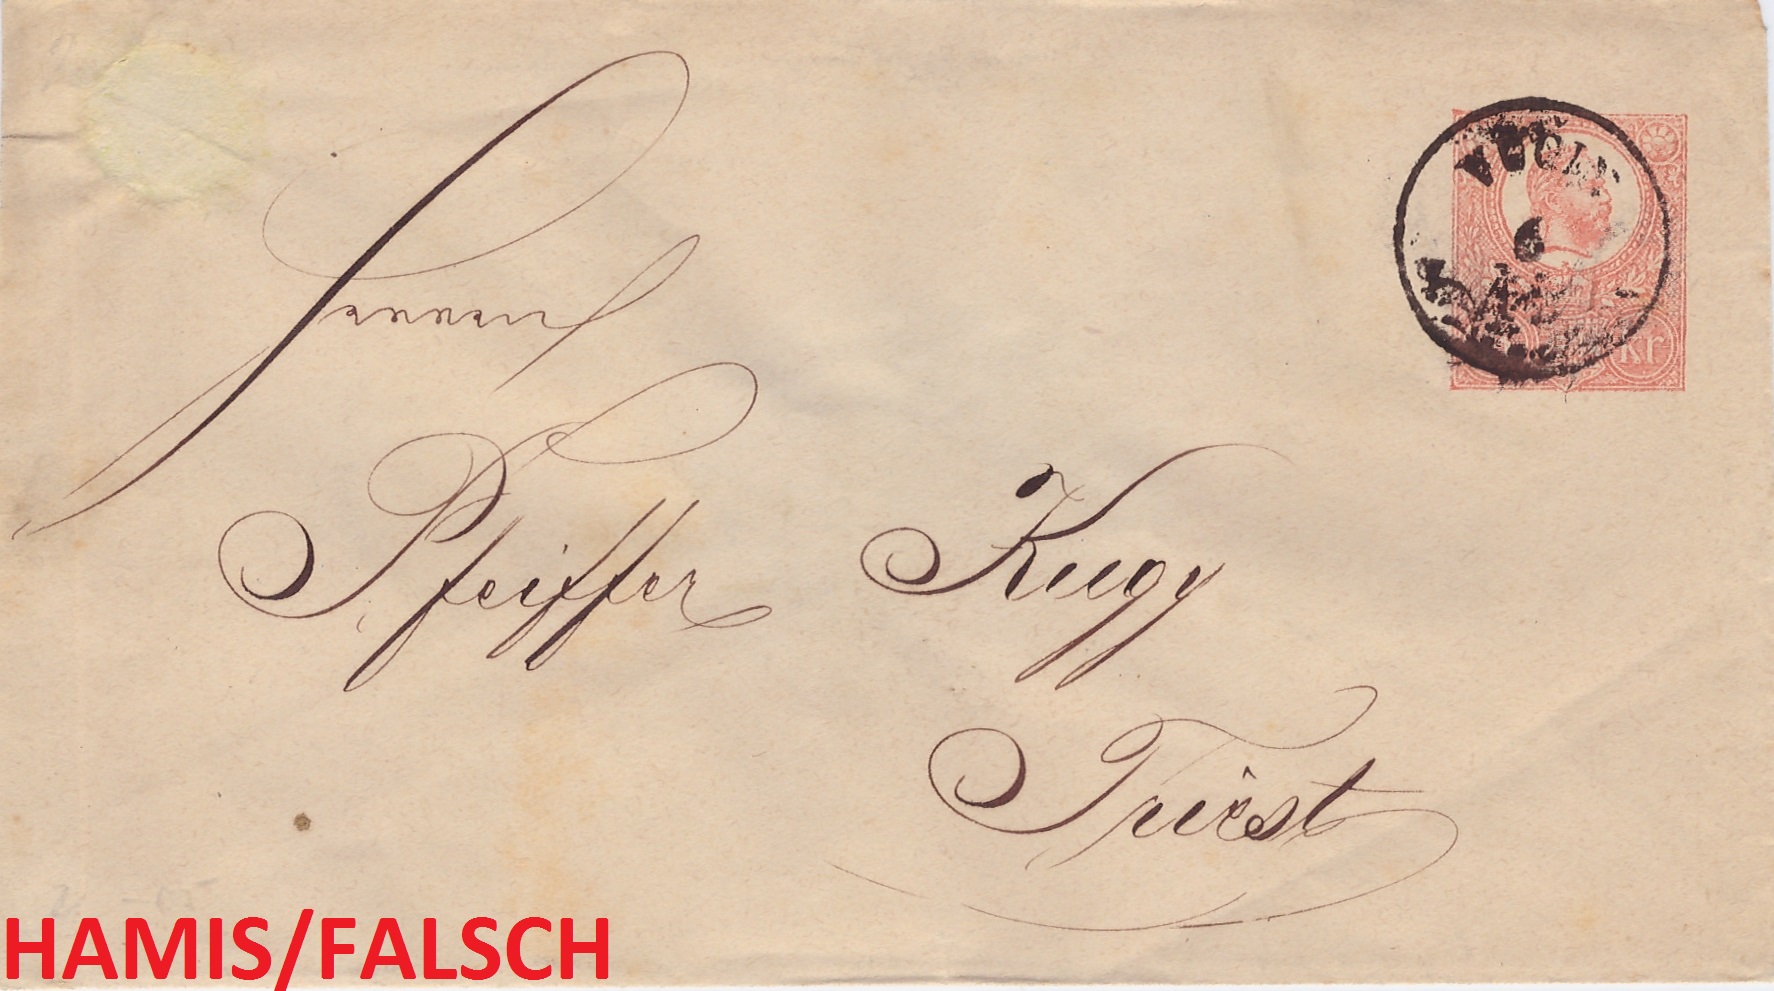 Herren
Pfeiffer Kugy
Triest
6
Kr
HAMIS/FALSCH